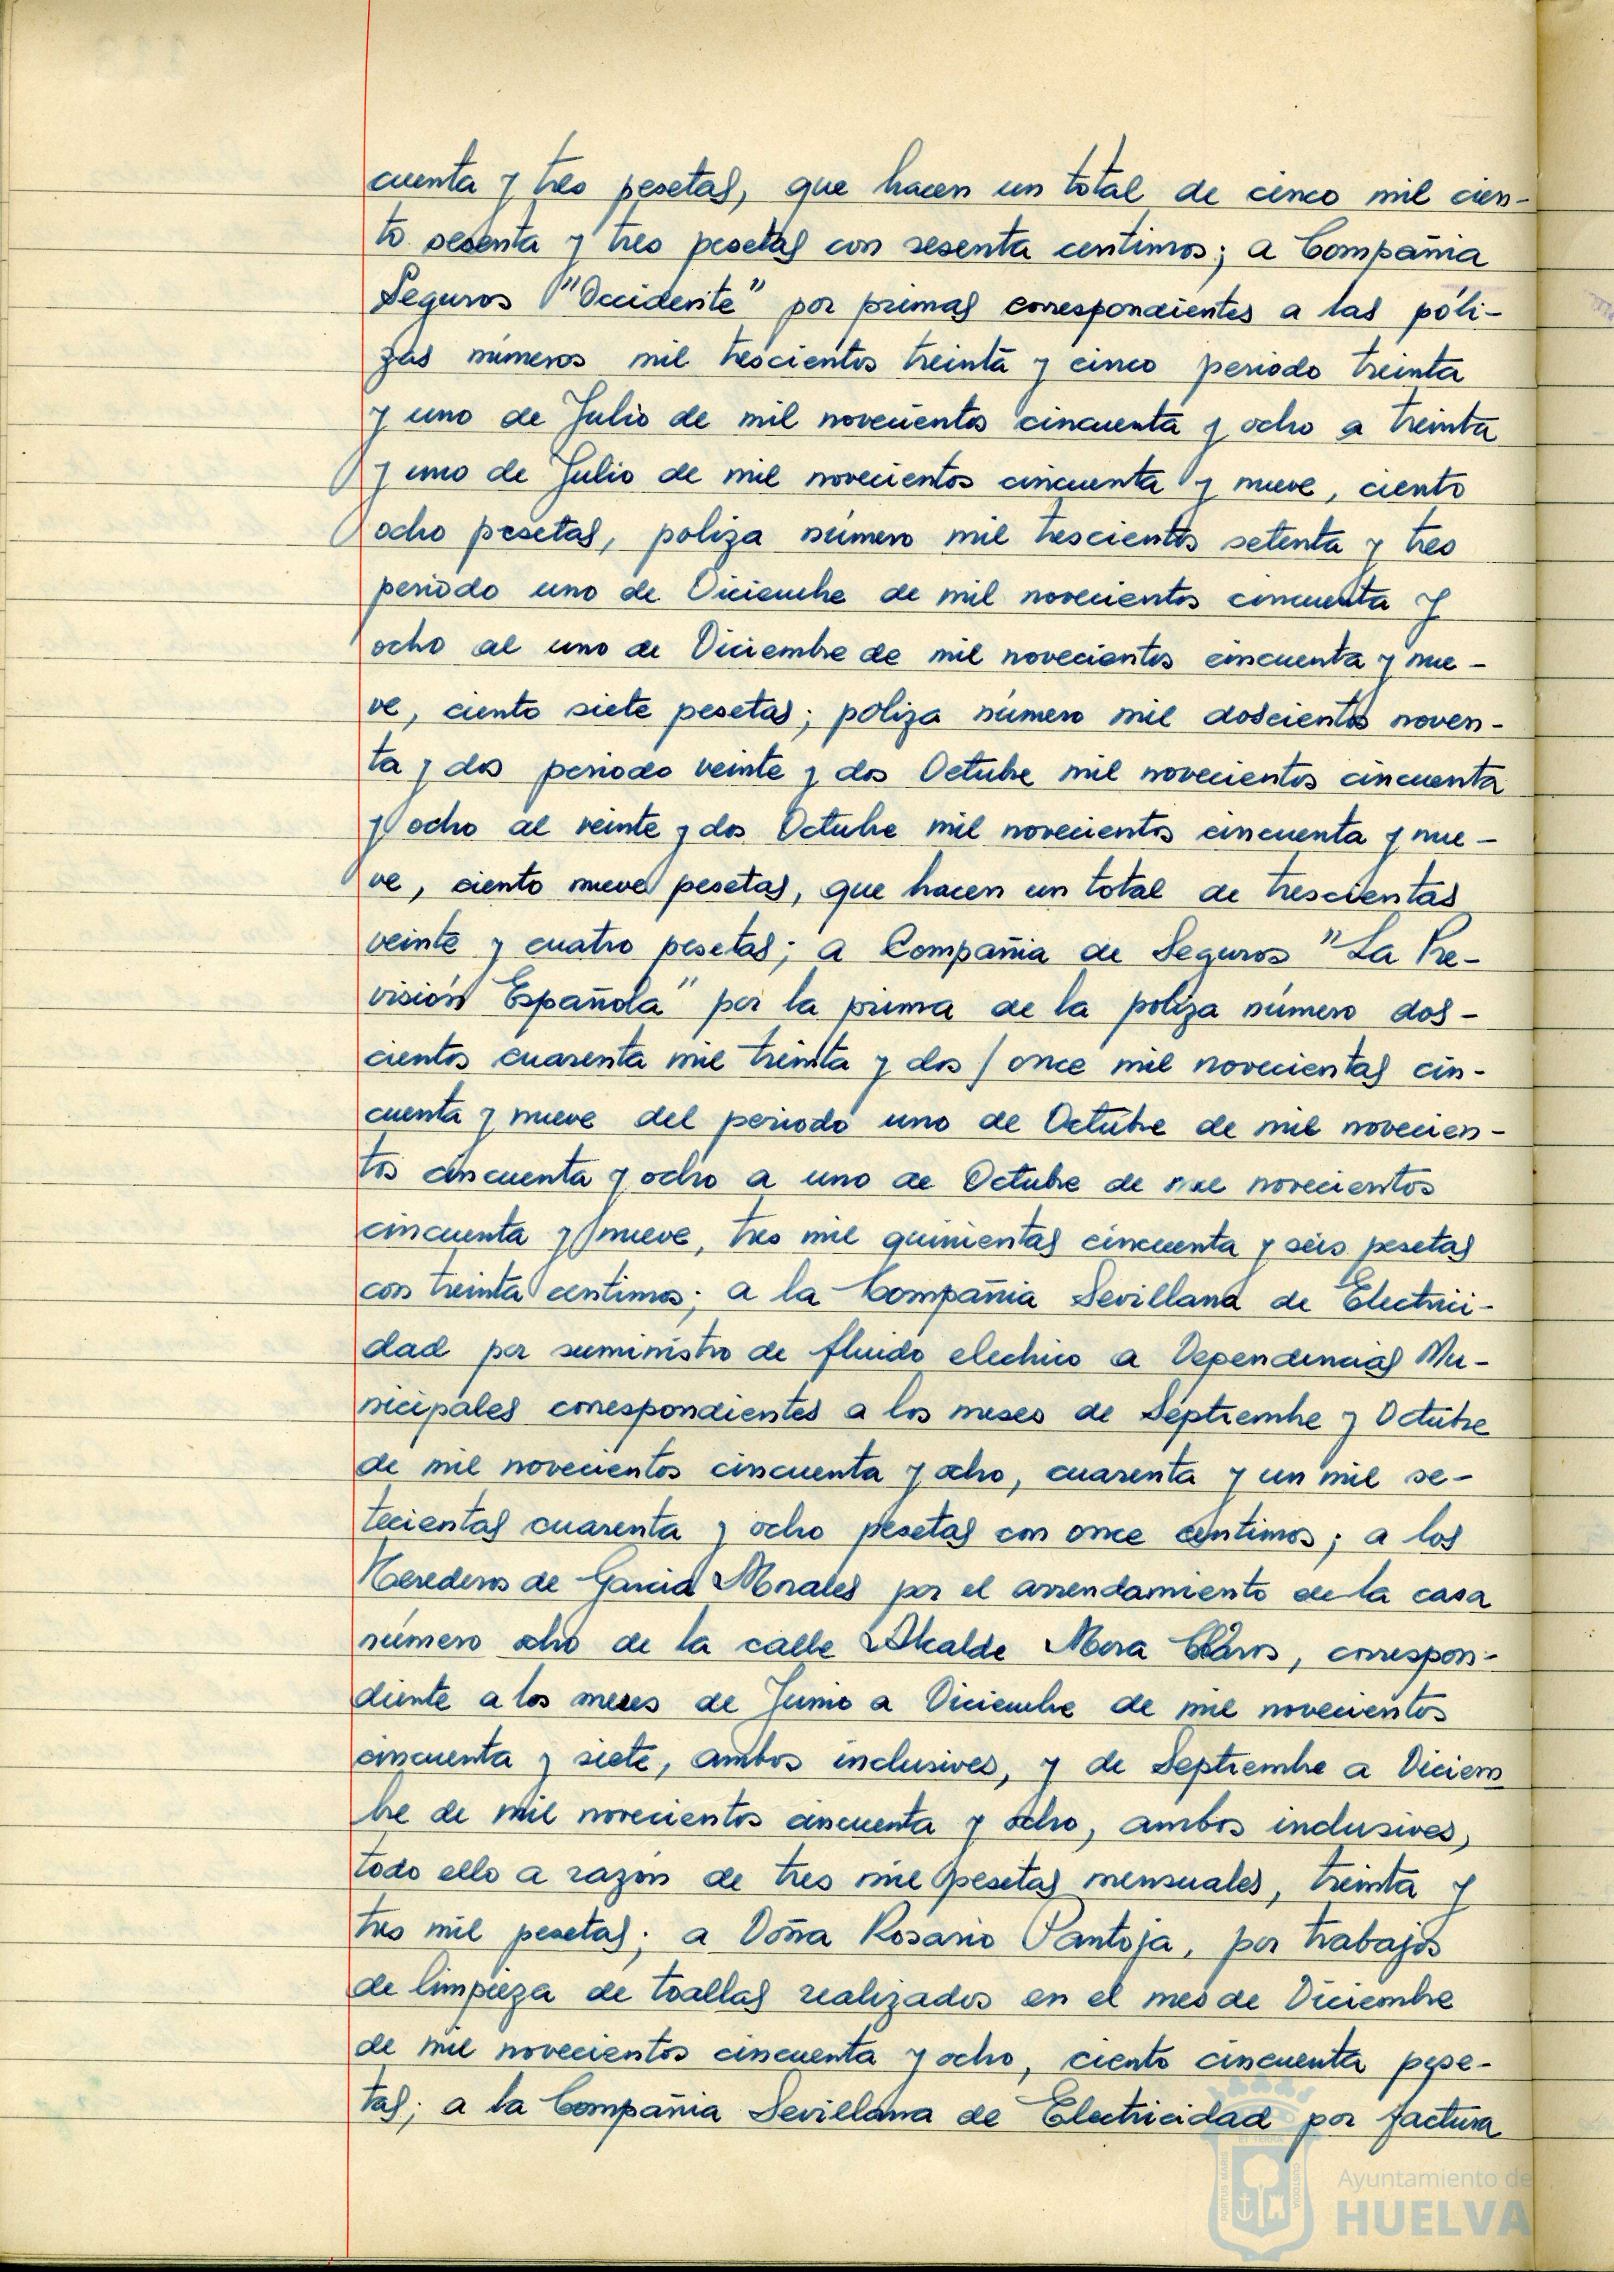 cuenta y tres pesetas, que hacen un total de cinco mil cien-
to sesenta y tres pesetas con sesenta centimos; a Compañia
Seguros "Occidente" por primas correspondientes a las póli-
zas números mil trescientos treinta y cinco periodo treinta
y uno de Julio de mil novecientos cincuenta y ocho a treinta
y uno de Julio de mil novecientos cincuenta y nueve, ciento
ocho pesetas, poliza número mil trescientos setenta y tres
periodo uno de Diciembre de mil novecientos cincuenta y
ocho al uno de Diciembre de mil novecientos cincuenta y nue-
ve, ciento siete pesetas; poliza número mil doscientos noven-
ta y dos periodo veinte y dos Octubre mil novecientos cincuenta
y ocho al veinte y dos Octubre mil novecientos cincuenta y nue-
ve, ciento nueve pesetas, que hacen un total de trescientas
veinte y cuatro pesetas; a Compañia de Seguros "La Pre-
visión Española" por la prima de la poliza número dos-
cientos cuarenta mil treinta y dos / once mil novecientas cin-
cuenta y nueve del periodo uno de Octubre de mil novecien-
tos cincuenta y ocho a uno de Octubre de mil novecientos
cincuenta y nueve, tres mil quinientas cincuenta y seis pesetas
con treinta centimos; a la Compañia Sevillana de Electrici-
dad por suministro de fluido electrico a Dependencias Mu-
nicipales correspondientes a los meses de Septiembre y Octubre
de mil novecientos cincuenta y ocho, cuarenta y un mil se-
tecientas cuarenta y ocho pesetas con once centimos; a los
Herederos de Garcia Morales por el arrendamiento de la casa
número ocho de la calle Alcalde Mora Claros, correspon-
diente a los meses de Junio a Diciembre de mil novecientos
cincuenta y siete, ambos inclusives, y de Septiembre a Diciem
bre de mil novecientos cincuenta y ocho, ambos inclusives,
todo ello a razón de tres mil pesetas mensuales, treinta y
tres mil pesetas; a Doña Rosario Pantoja, por trabajos
de limpieza de toallas realizados en el mes de Diciembre
de mil novecientos cincuenta y ocho, ciento cincuenta pese-
tas; a la Compañia Sevillana de Electricidad por factura
PORTUS MARIS
ET TERRAE
CUSTODIA
Ayuntamiento de
HUELVA